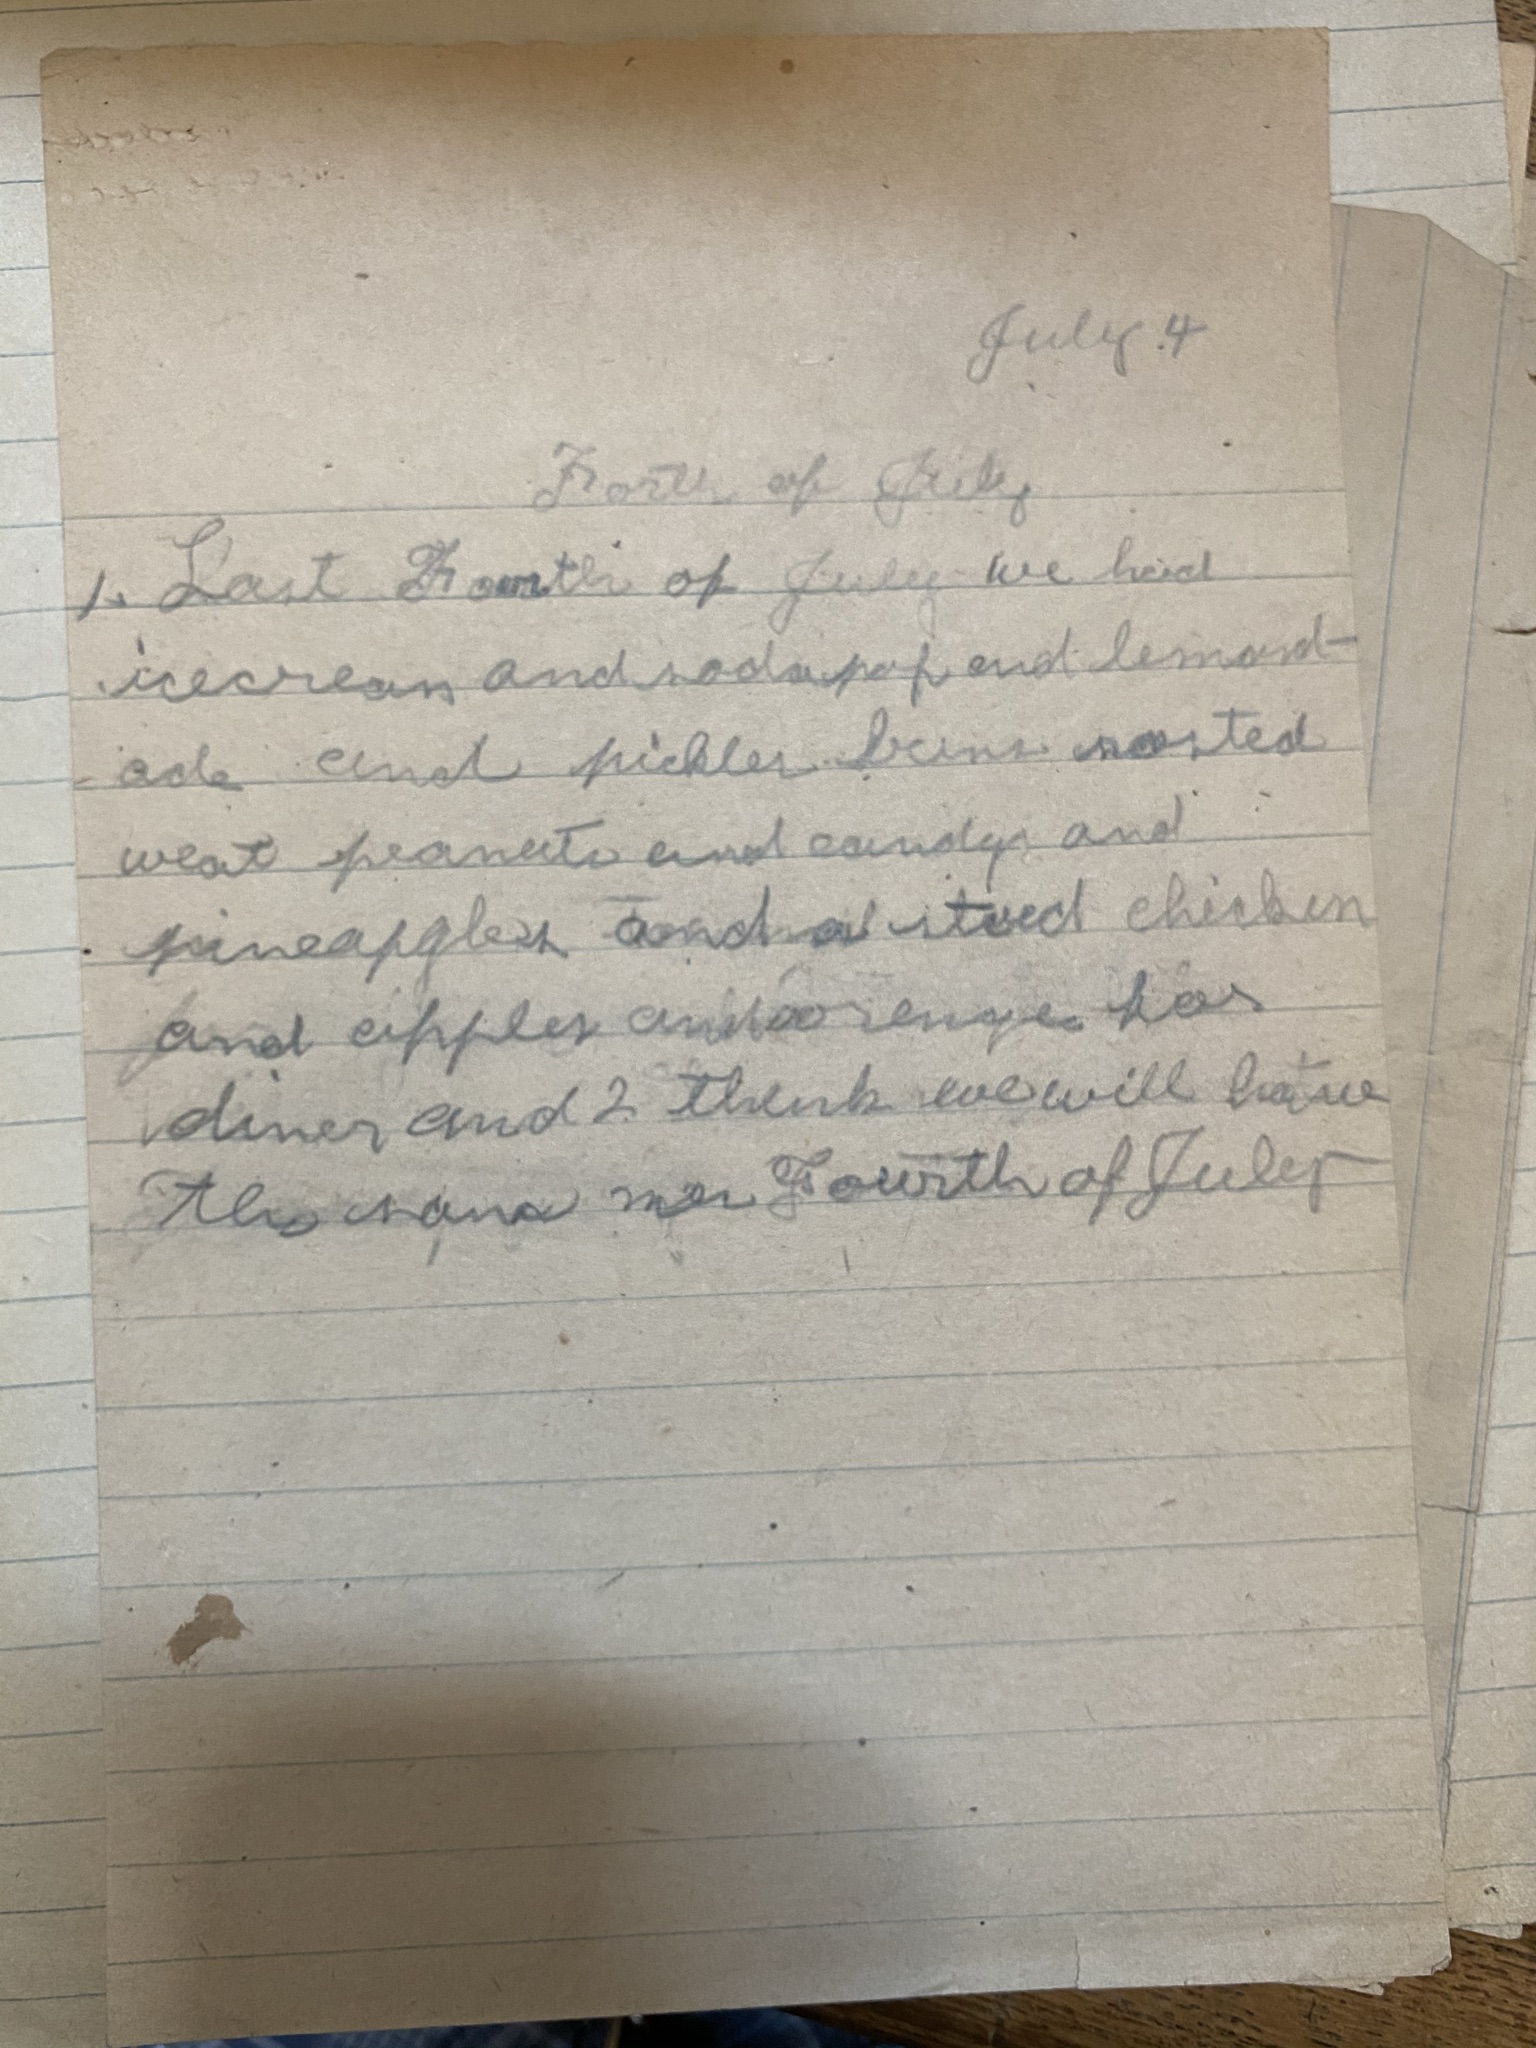 July 4
Forth of July
1. Last Fourth of July we had
icecream and sodapop and lemond-
ade and pickles beens rosted
weat peanuts and candys and
pineapples and a stued chicken
and apples and orenges for
diner and I think we will have
the same nex Fourth of July